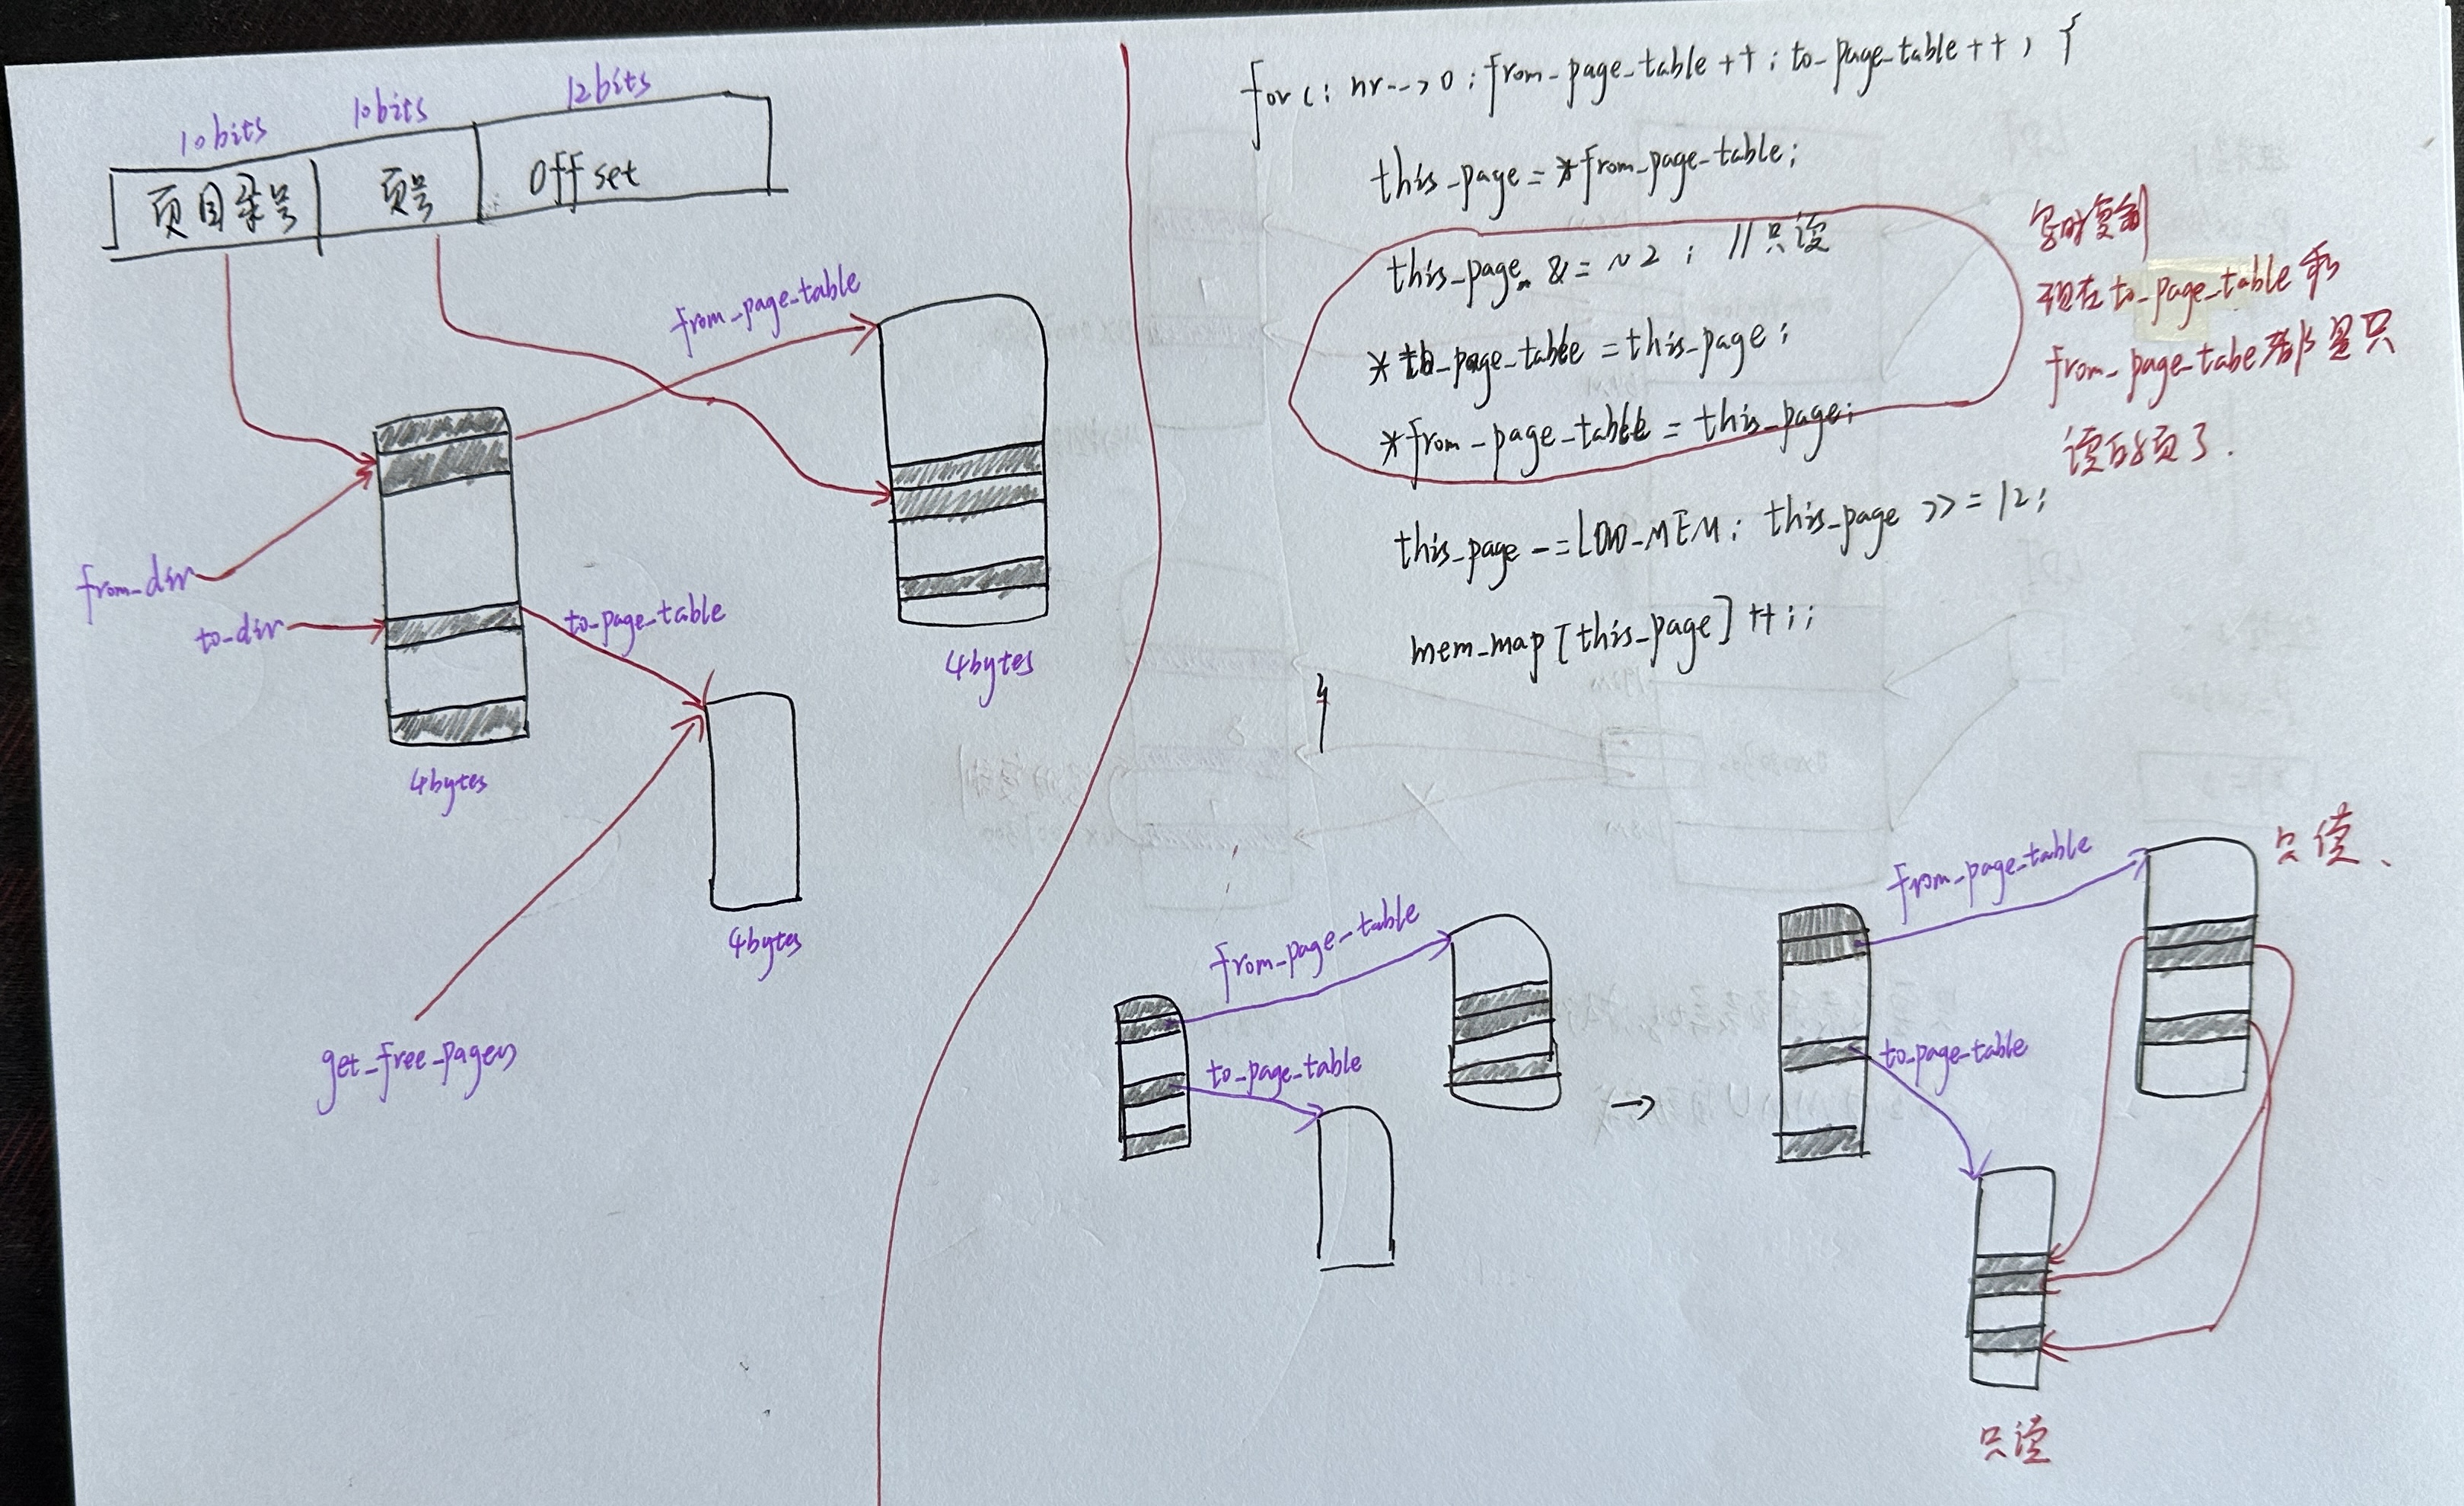 10bits 10bits 12bits
页目录号 页号 Offset
from_page_table
from_dir
to_dir
to_page_table
4bytes
4bytes
4bytes
get_free_page()
for (; nr-->0; from_page_table++; to_page_table++) {
this_page = *from_page_table;
this_page &= ~2; //只读
*to_page_table = this_page;
*from_page_table = this_page;
this_page -= LOW_MEM; this_page >>= 12;
mem_map[this_page]++;;
}
写时复制
现在to_page_table和
from_page_tabe都是只
读的页了.
from_page_table
to_page_table
→
from_page_table
只读、
to_page_table
只读